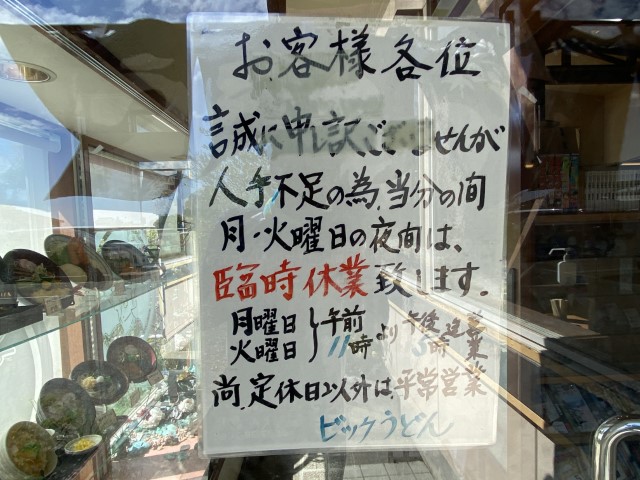 お客様各位
誠に申し訳ございませんが
人手不足の為、当分の間
月・火曜日の夜間は、
臨時休業致します。
月曜日
火曜日
午前11時より午後5時迄営業
尚、定休日以外は、平常営業
ビックうどん